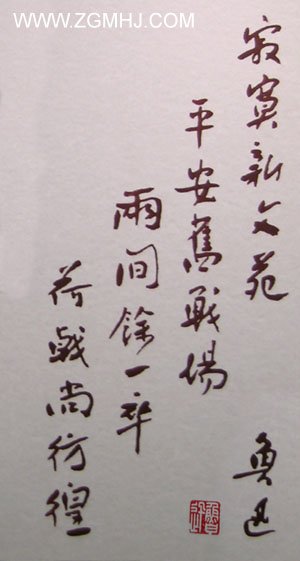 WWW.ZGMHJ.COM
寂寞新文苑
平安舊戰場
兩间餘一卒
荷戟尚彷徨
魯迅